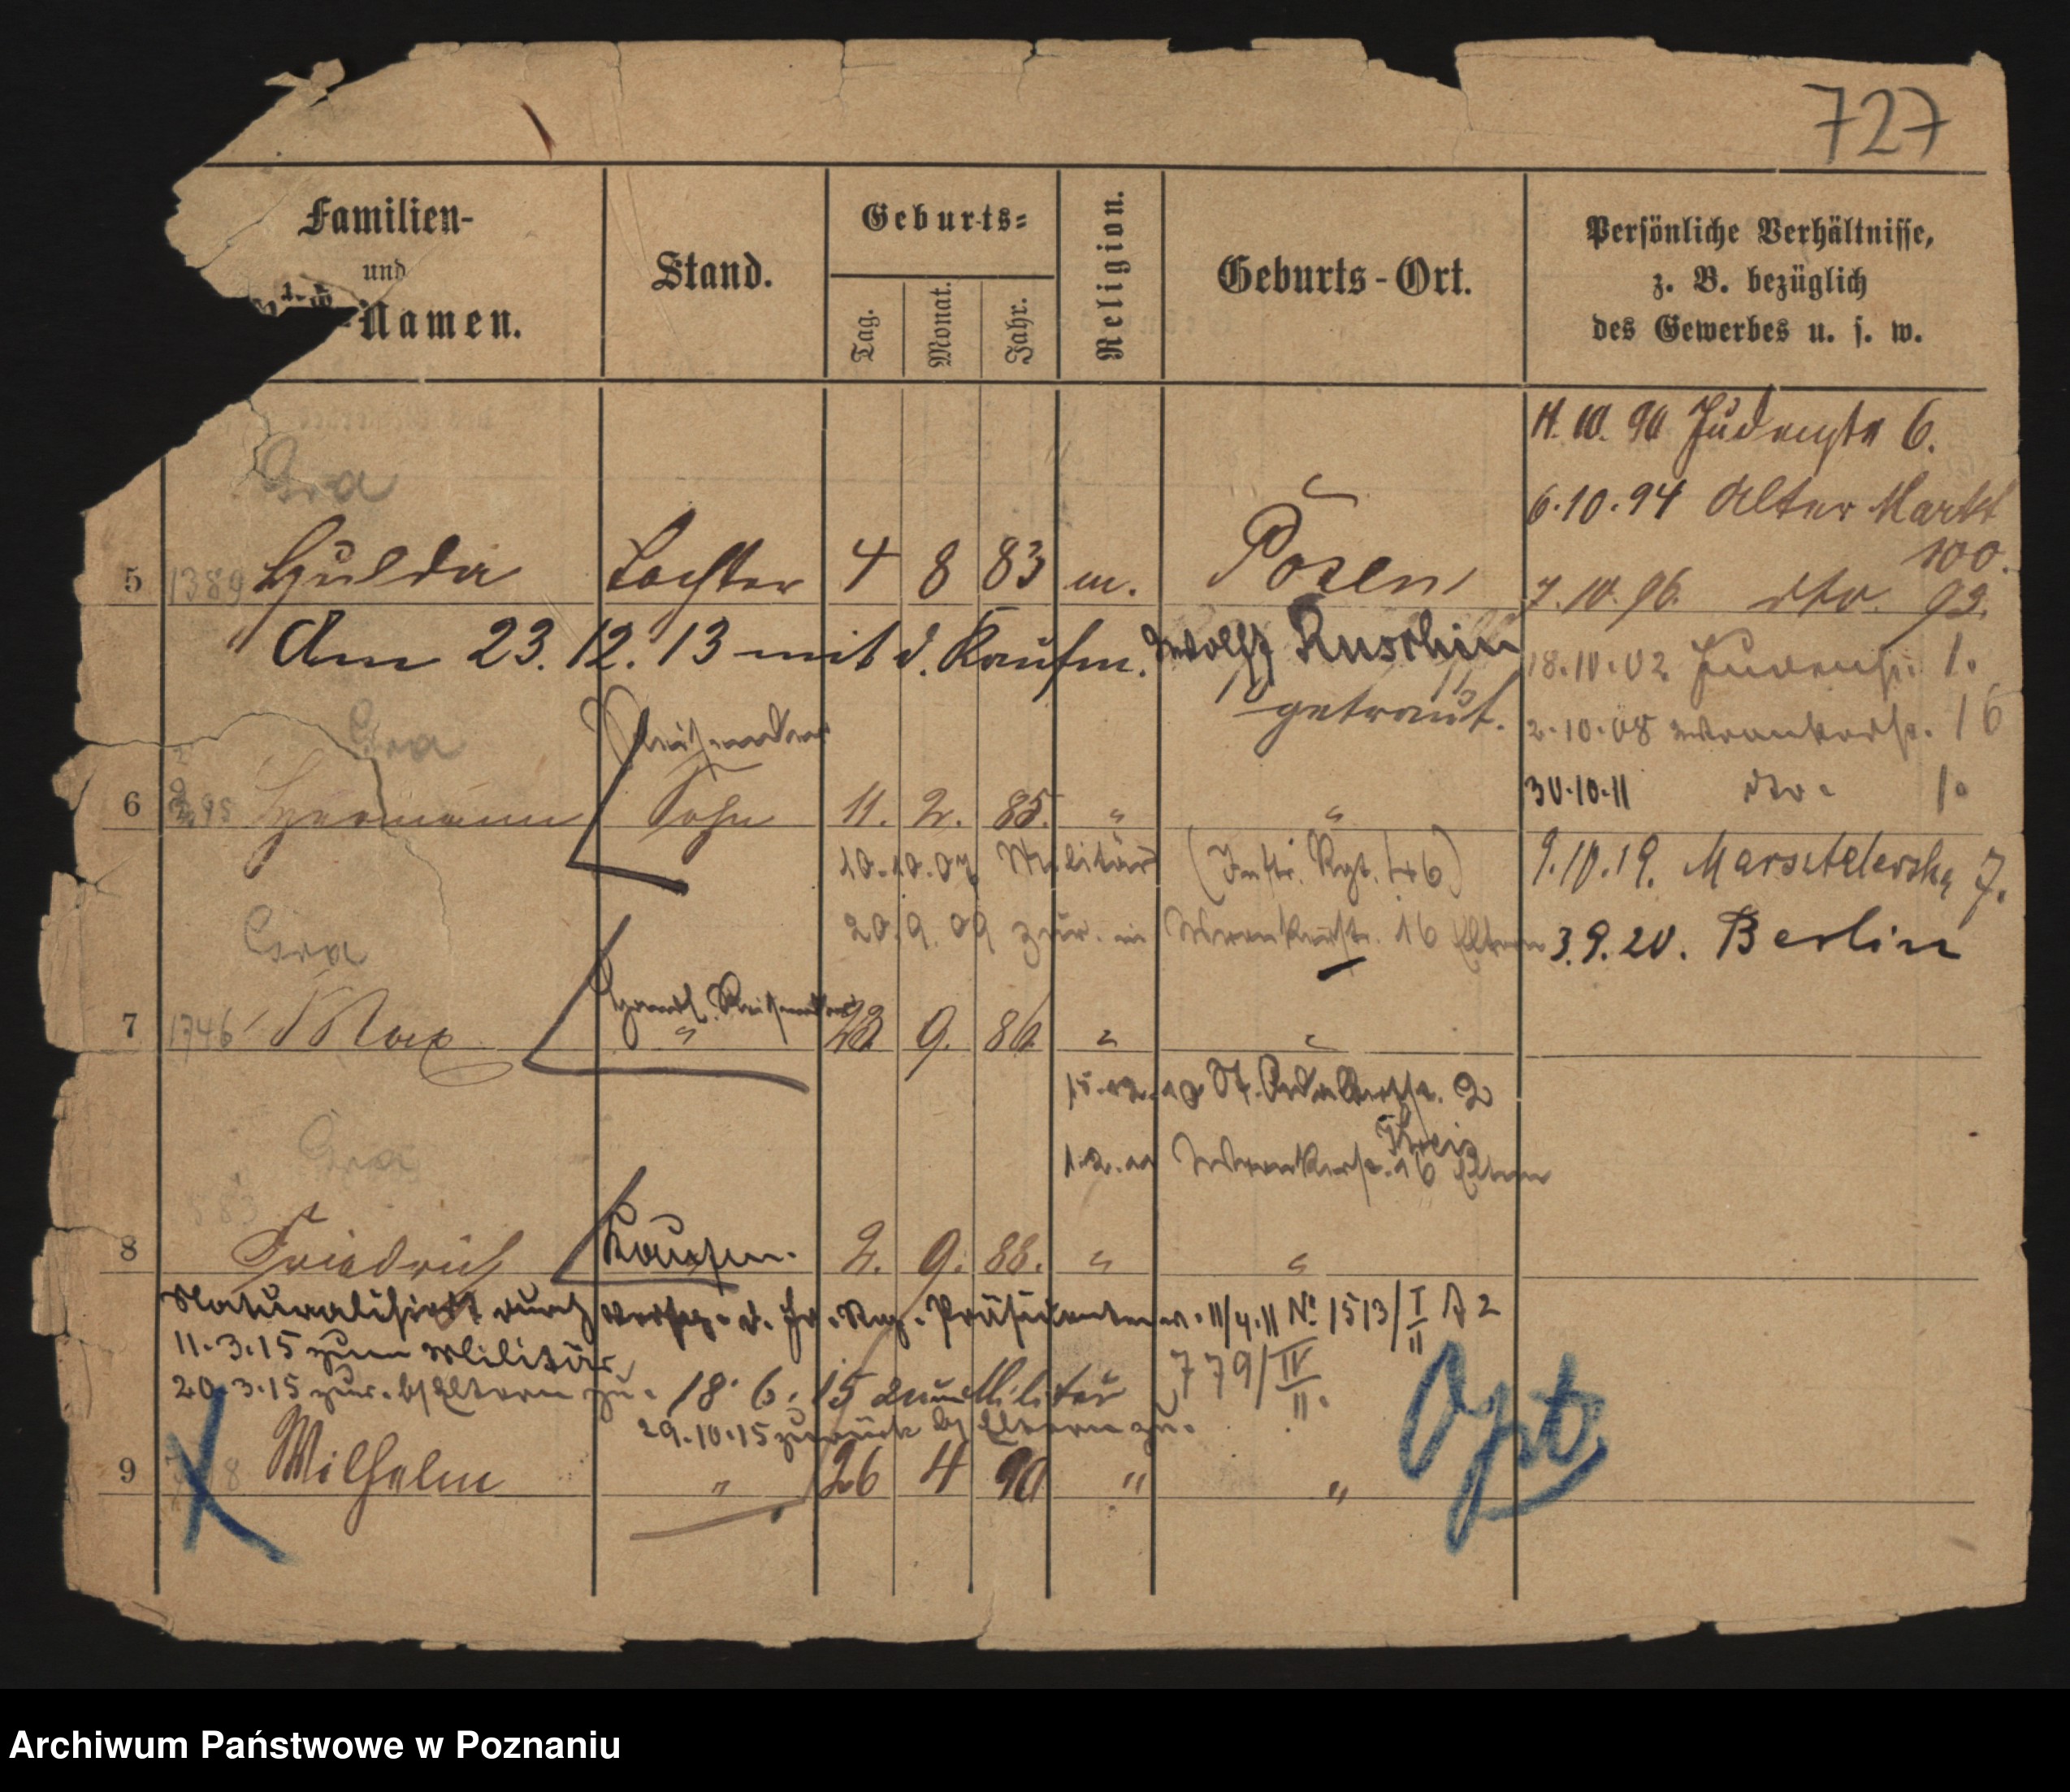 727
Familien-
und
-Namen.
Stand.
Geburts=
Tag.
Monat.
Jahr.
Religion.
Geburts-Ort.
Persönliche Verhältnisse,
z. B. bezüglich
des Gewerbes u. s. w.
11. 10. 90 Judenstr 6.
Gra
6.10.94 Alter Markt
100.
5 1389 Hulda Tochter 4 8 83 m. Posen
7.10.96. dto. 92.
Am 23.12.13 mit d. Kaufm. Wolff Ruschin
getraut.
18.10.02 Judenstr. 1.
Gra
2.10.08 Wronkerstr. 16
6 Hermann Sohn 11. 2. 85. " "
30.10.11 dto. 1.
10.10.07 Militär (Inftr. Rgt. 46)
9.10.19. Marsztalerska 7.
20.9.09 zur. in Wronkerstr. 16 Eltern
3.9.20. Berlin
Gra
7 1746 Max " 23 9. 86 " "
St. Adalbertstr. 2
Wronkerstr. 16 Eltern
Gra
8 Friedrich Kaufm. 2. 9. 88. " "
Naturalisiert durch d. Präsidenten v. 11/4.11 No 1513/I II A 2
11.3.15 zum Militär
779/IV II.
20.3.15 zur. b/Eltern zu. 18.6.15 zum Militär
29.10.15 zurück b/ Eltern zu.
Opt
9 Wilhelm " 26 4 90 " "
Archiwum Państwowe w Poznaniu